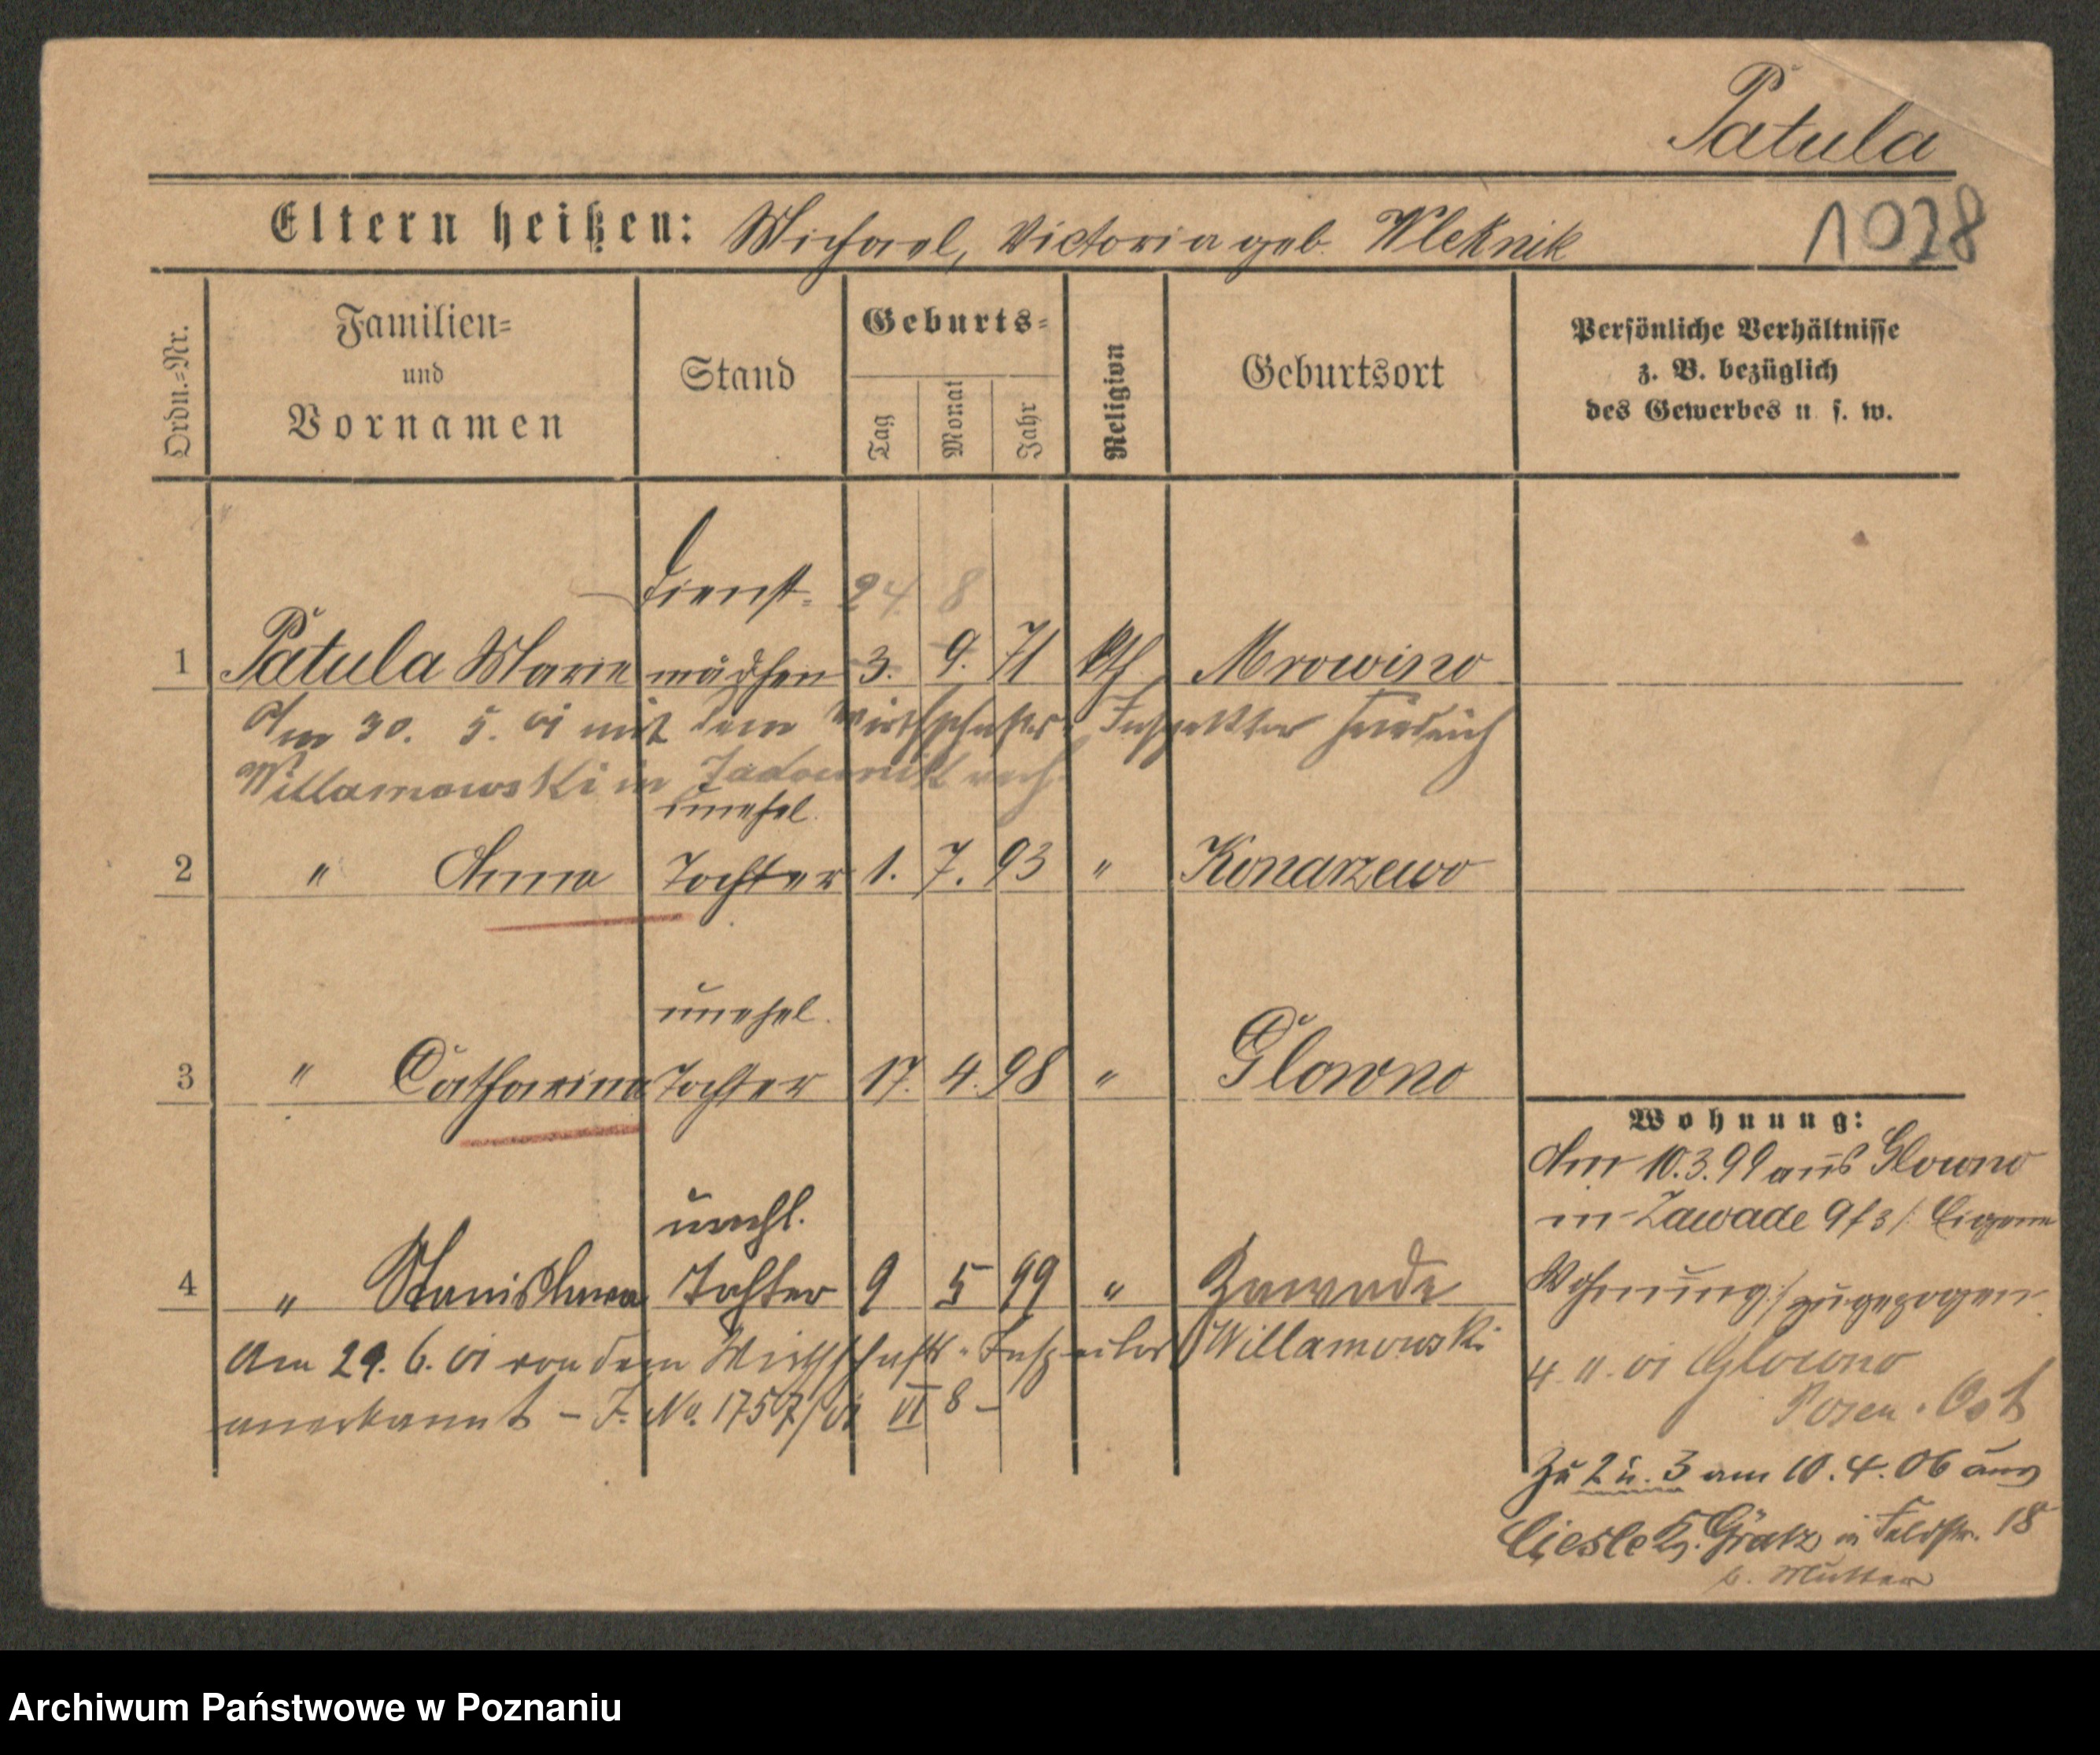 Patula
1028
Eltern heißen: Michael, Victoria geb. Wleknik
Ordn.=Nr.
Familien=
und
Vornamen
Stand
Geburts=
Tag
Monat
Jahr
Religion
Geburtsort
Persönliche Verhältnisse
z. B. bezüglich
des Gewerbes u. s. w.
Dienst= 24. 8
1 Patula Marie mädchen 3. 9. 71 kth. Mrowino
Am 30. 5. 01 mit dem Wirthschafts-Inspektor Friedrich
Willamowski in verh.
unehel.
2 " Anna Tochter 1. 7. 93 " Konarzewo
unehel.
3 " Catharina Tochter 17. 4. 98 " Glowno
Wohnung:
Am 10.3.99 aus Glowno
in Zawade 9/3 /: Eigene
Wohnung :/ zugezogen.
unehl.
4 " Stanislawa Tochter 9 5 99 " Zawade
Am 29. 6. 01 von dem Wirthschafts-Inspector Willamowski
anerkannt – J. No. 1757/01 VI 8 –
4. 11. 01 Glowno
Posen-Ost
Zu 2 u. 3 am 10. 4. 06 aus
Ciesle K. Grätz in Feldstr. 18
b. Mutter
Archiwum Państwowe w Poznaniu